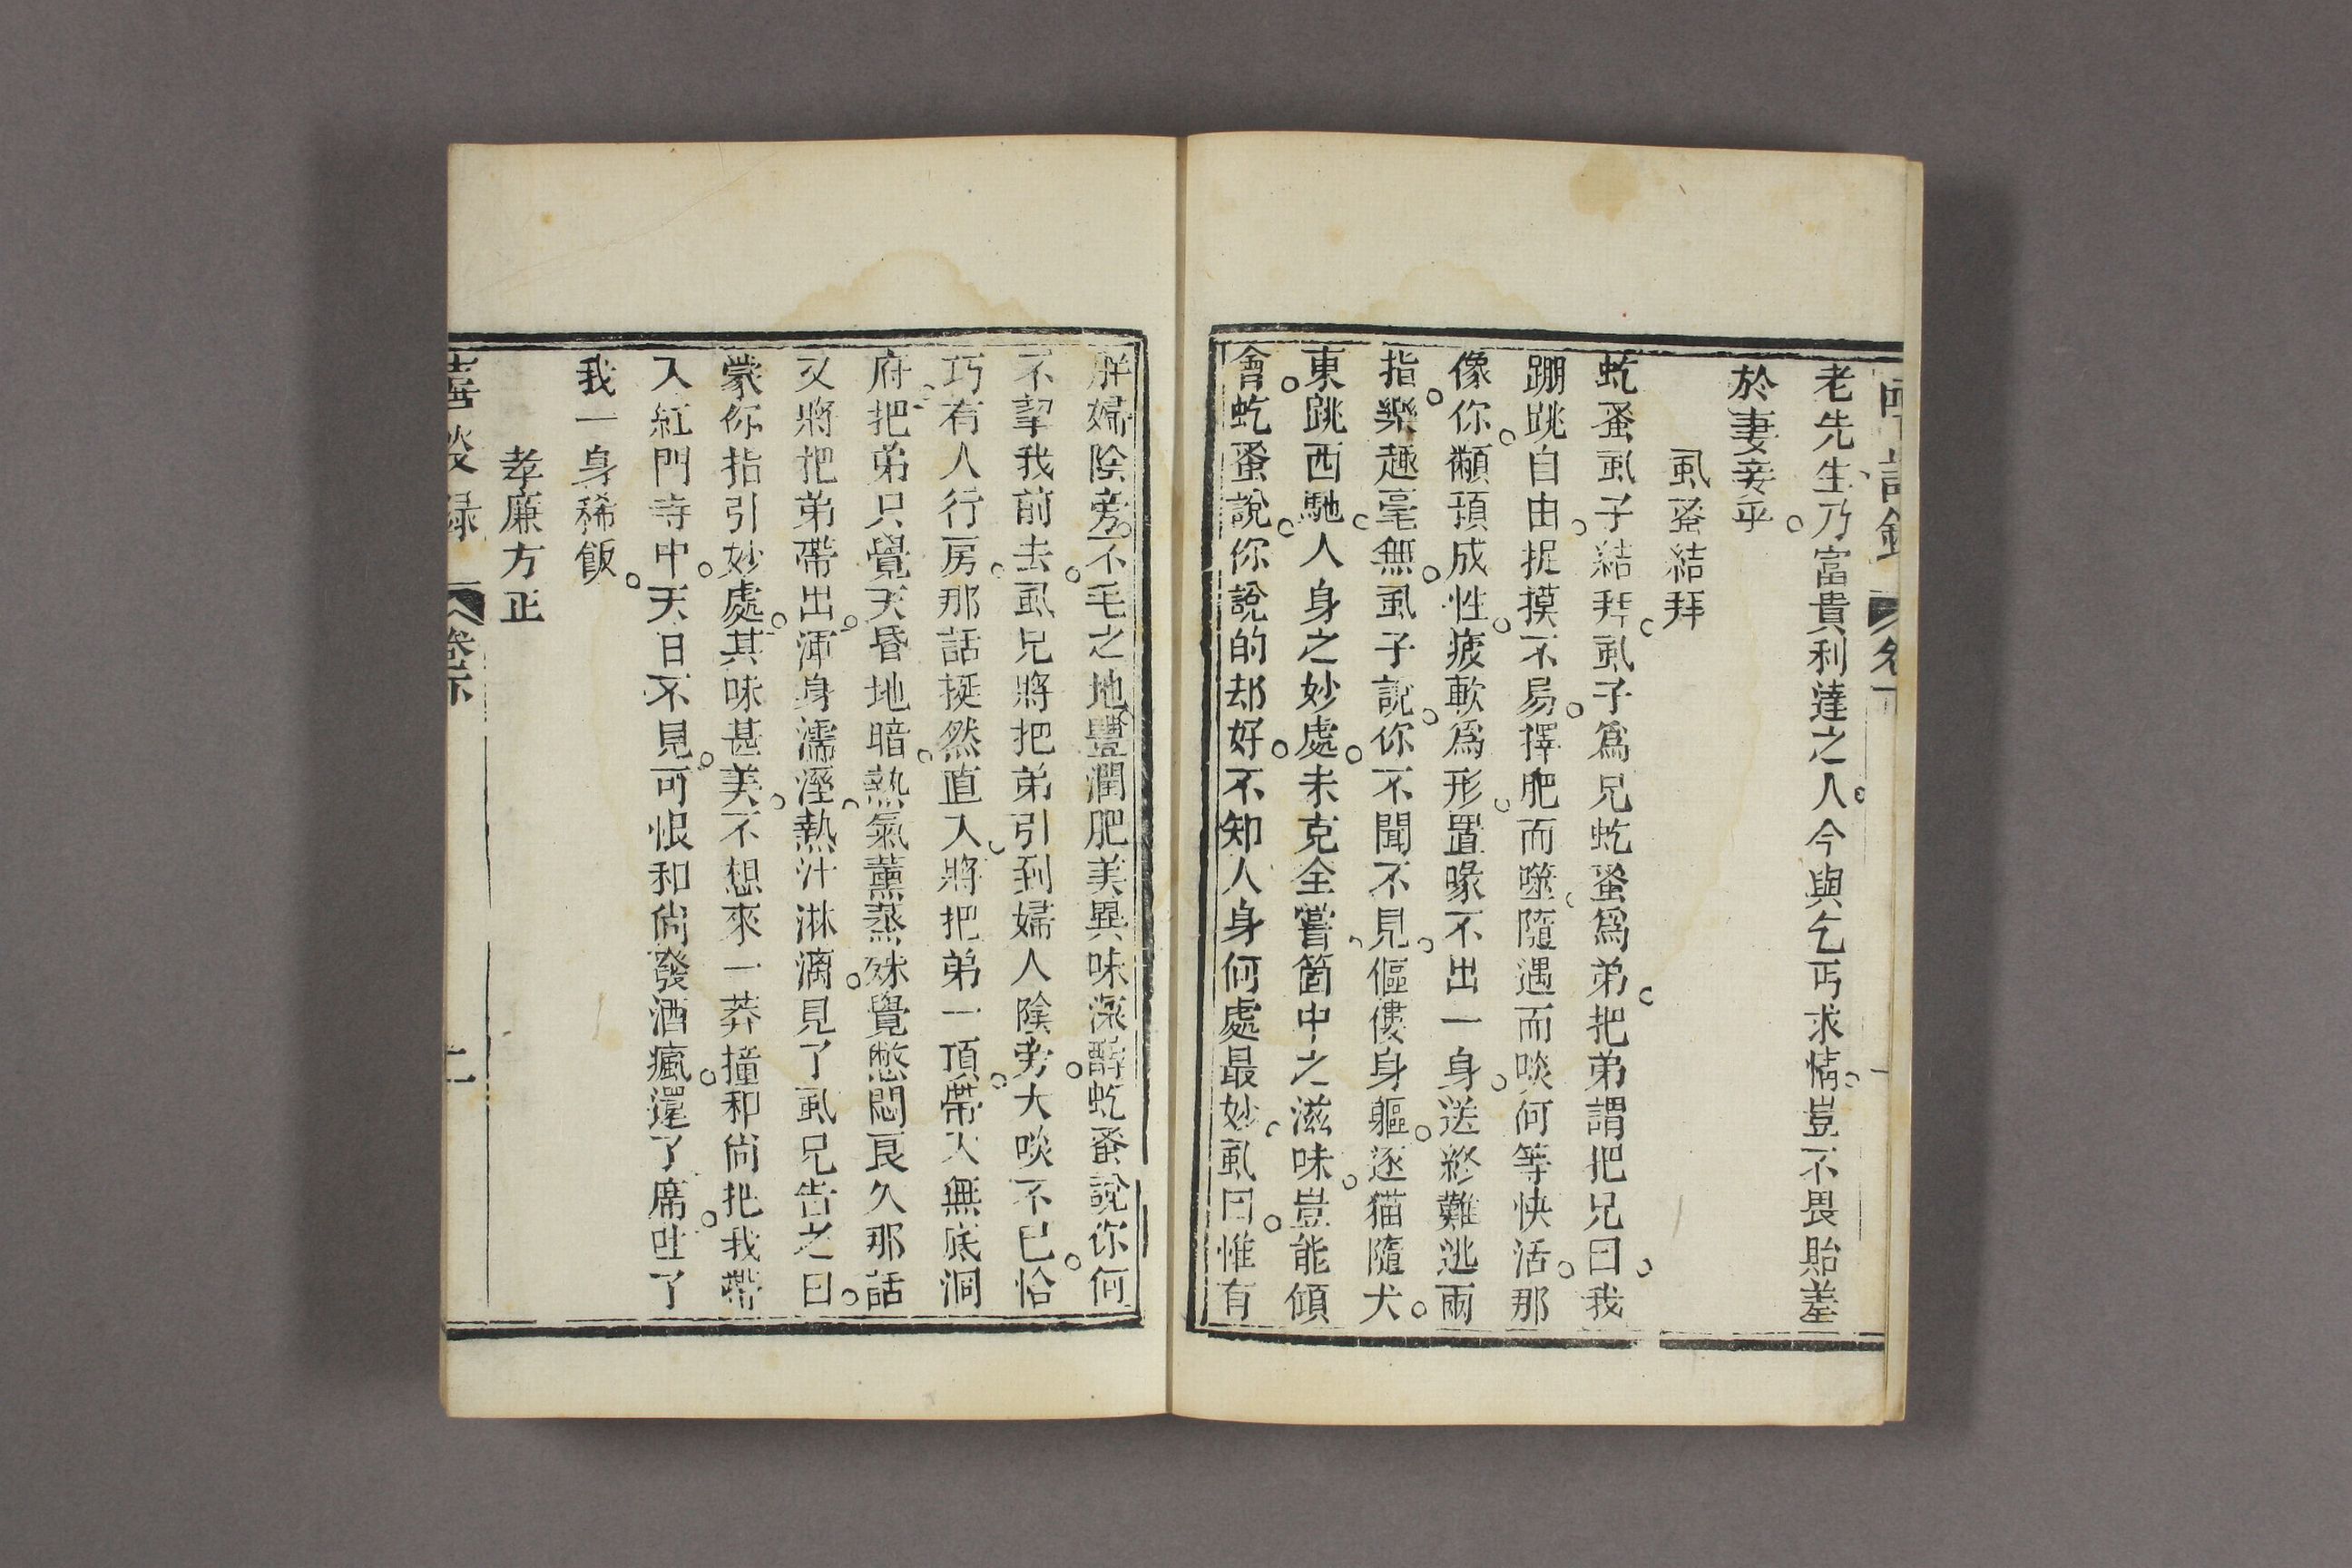 老先生乃富貴利達之人。今與乞丐求情。豈不畏貽羞
於妻妾乎。
虱蚤結拜
虼蚤虱子結拜。虱子爲兄虼蚤爲弟。把弟謂把兄曰。我
蹦跳自由。捉摸不易。擇肥而噬。隨遇而啖。何等快活。那
像你。顢頇成性。疲軟爲形。置喙不出一身。送終難逃兩
指。樂趣毫無。虱子說。你不聞不見。傴僂身軀。逐猫隨犬。
東跳西馳。人身之妙處。未克全嘗。箇中之滋味。豈能傾
會。虼蚤說。你說的却好。不知人身何處最妙。虱曰。惟有
胖婦陰旁。不毛之地。豐潤肥美。異味深醇。虼蚤說。你何
不挈我前去。虱兄將把弟引到婦人陰旁。大啖不已。恰
巧有人行房。那話挺然直入。將把弟一頂。帶入無底洞
府。把弟只覺天昏地暗。熱氣薰蒸。殊覺憋悶。良久那話
又將把弟帶出。渾身濡溼。熱汁淋滴。見了虱兄告之曰。
蒙你指引妙處。其味甚美。不想來一莽撞和尚。把我帶
入紅門寺中。天日不見。可恨和尚發酒瘋。還了席。吐了
我一身稀飯。
孝廉方正
喜談録 卷下